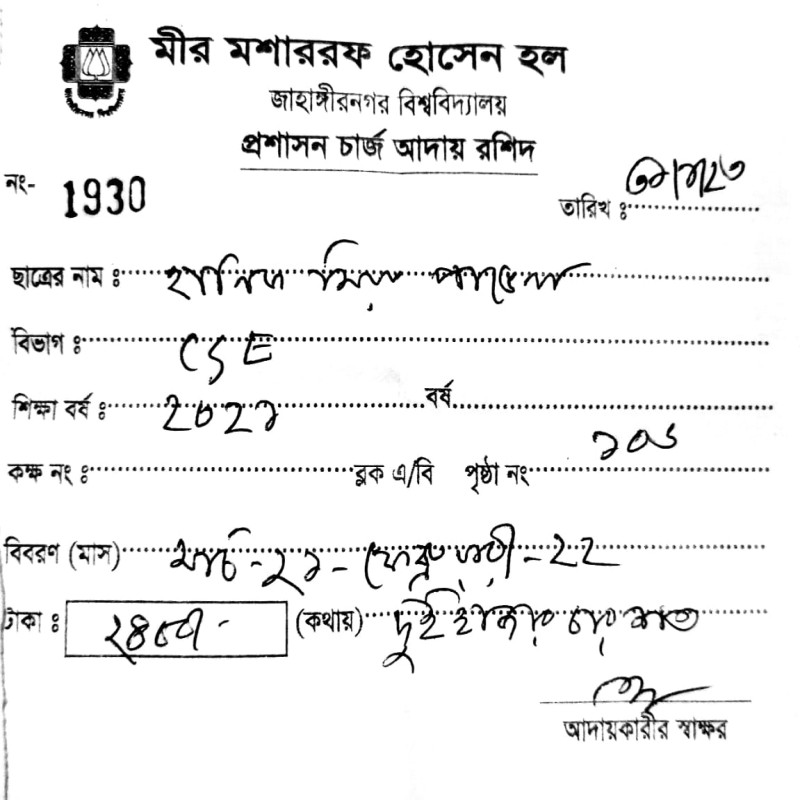 মীর মশাররফ হোসেন হল
জাহাঙ্গীরনগর বিশ্ববিদ্যালয়
প্রশাসন চার্জ আদায় রশিদ
নং- 1930
তারিখ ঃ
ছাত্রের নাম ঃ মিয়া
বিভাগ ঃ CSE
শিক্ষা বর্ষ ঃ ২০২১ বর্ষ
কক্ষ নং ঃ ব্লক এ/বি পৃষ্ঠা নং ১০৬
বিবরণ (মাস) মার্চ-২১-ফেব্রুয়ারী-২২
টাকা ঃ ২৪০০/- (কথায়) দুই হাজার চার শত
আদায়কারীর স্বাক্ষর